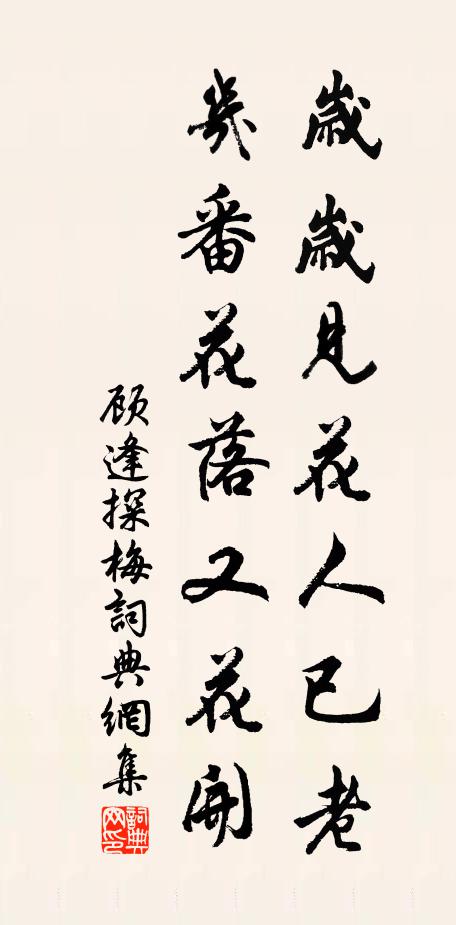 歲歲見花人已老
幾番花落又花開
顾逢探梅詞典網集
詞典網印